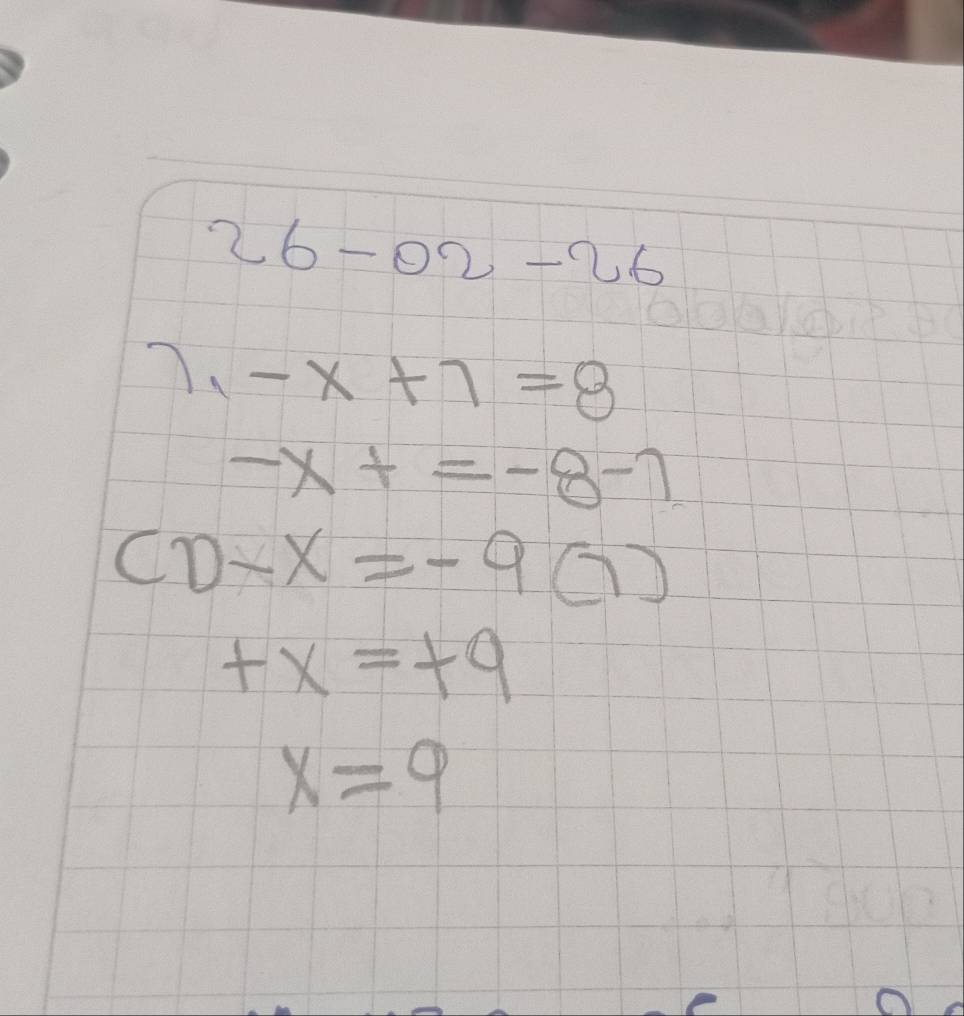 26-02-26
1. -x+1=8
-x+ = -8-1
(1)-x=-9(1)
+x=+9
x=9